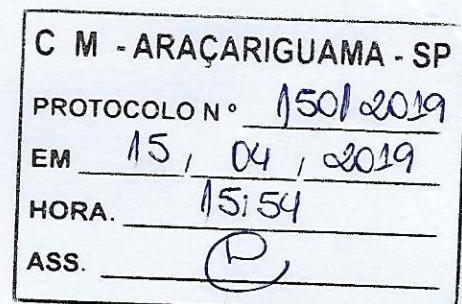 C M - ARAÇARIGUAMA - SP
PROTOCOLO Nº 150/2019
EM 15, 04, 2019
HORA. 15:54
ASS.